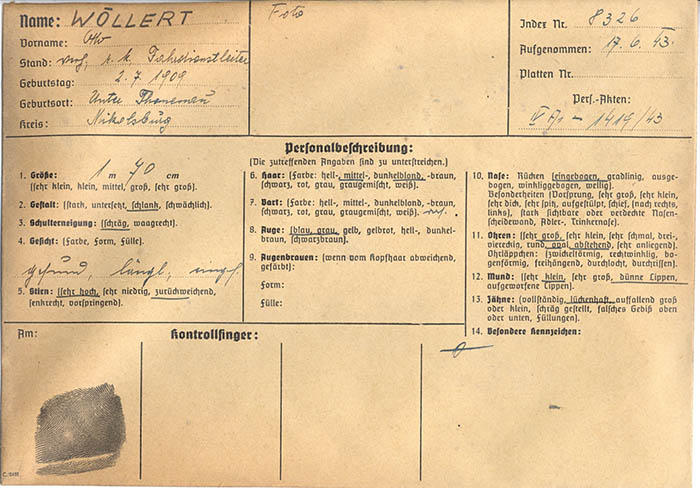 Name: WÖLLERT
Vorname: Otto
Stand: r. k. Fahrdienstleiter
Geburtstag: 2. 7 1909
Geburtsort: Unter
Kreis: Nikolsburg
Foto
Index Nr. 8326
Aufgenommen: 17. 6. 43.
Platten Nr.
Pers.-Akten:
1419/43
Personalbeschreibung:
(Die zutreffenden Angaben sind zu unterstreichen.)
1. Größe: 1 m 70 cm
(sehr klein, klein, mittel, groß, sehr groß).
2. Gestalt: (stark, untersetzt, schlank, schwächlich).
3. Schulterneigung: (schräg, waagrecht).
4. Gesicht: (Farbe, Form, Fülle).
gesund, längl,
5. Stirn: (sehr hoch, sehr niedrig, zurückweichend,
senkrecht, vorspringend).
6. Haar: (Farbe: hell-, mittel-, dunkelblond, -braun,
schwarz, rot, grau, graugemischt, weiß).
7. Bart: (Farbe: hell-, mittel-, dunkelblond, -braun,
schwarz, rot, grau, graugemischt, weiß).
8. Auge: (blau, grau, gelb, gelbrot, hell-, dunkel-
braun, schwarzbraun).
9. Augenbrauen: (wenn vom Kopfhaar abweichend,
gefärbt):
Form:
Fülle:
10. Nase: Rücken (eingebogen, gradlinig, ausge-
bogen, winkliggebogen, wellig).
Besonderheiten (Vorsprung, sehr groß, sehr klein,
sehr dick, sehr spitz, aufgestülpt, schief, [nach rechts,
links), stark sichtbare oder verdeckte Nasen-
scheidewand, Adler-, Trinkernase).
11. Ohren: (sehr groß, sehr klein, sehr schmal, drei-,
viereckig, rund, oval, abstehend, sehr anliegend).
Ohrläppchen: (zwickelförmig, rechtwinklig, bo-
genförmig, freihängend, durchlocht, durchrissen).
12. Mund: (sehr klein, sehr groß, dünne Lippen,
aufgeworfene Lippen).
13. Zähne: (vollständig, lückenhaft, auffallend groß
oder klein, schräg gestellt, falsches Gebiß oben
oder unten, Füllungen).
14. Besondere Kennzeichen:
Am:
Kontrollfinger: